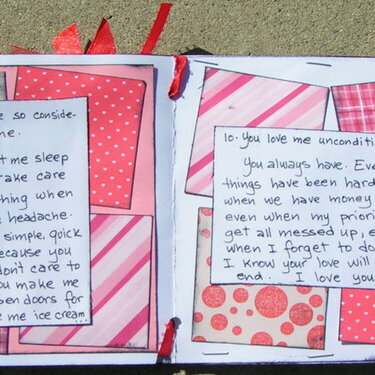 so conside-
me.
me sleep
take care
thing when
headache.
simple, quick
because you
don't care to
you make me
open doors for
me ice cream...
10. You love me
You always have.
things have been hard
when we have money
even when my
get all messed up,
when I forget to do
I know your love will
end. I love you